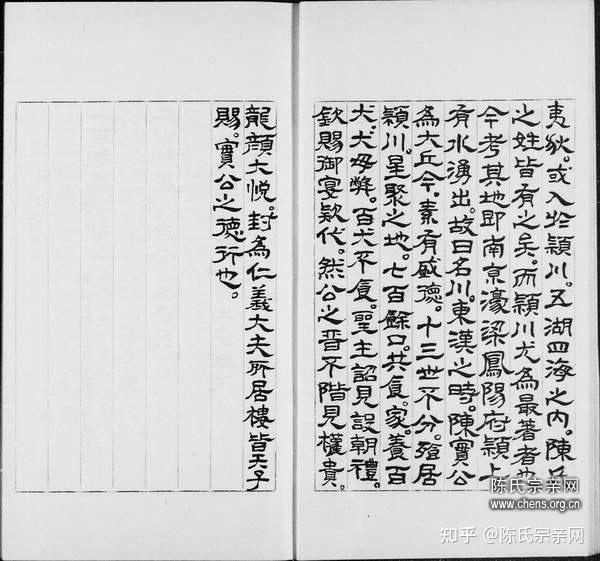 夷狄。或入於穎川。五湖四海之內。陳氏
之姓皆有之矣。而穎川尤為最著者也
今考其地即南京濠梁鳳陽府穎上
有水湧出。故曰名川。東漢之時。陳實公
為大丘令。素有盛德。十三世不分。殪居
穎川。星聚之地。七百餘口。共食。家。養百
犬。犬母斃。百犬不食。聖主詔見設朝禮。
欽賜御宴欵代。然公之晋不階見權貴。
龍顏大悅。封為仁義大夫所居樓皆天子
賜。實公之德行也。
陈氏宗亲网
www.chens.org.cn
知乎 @陈氏宗亲网